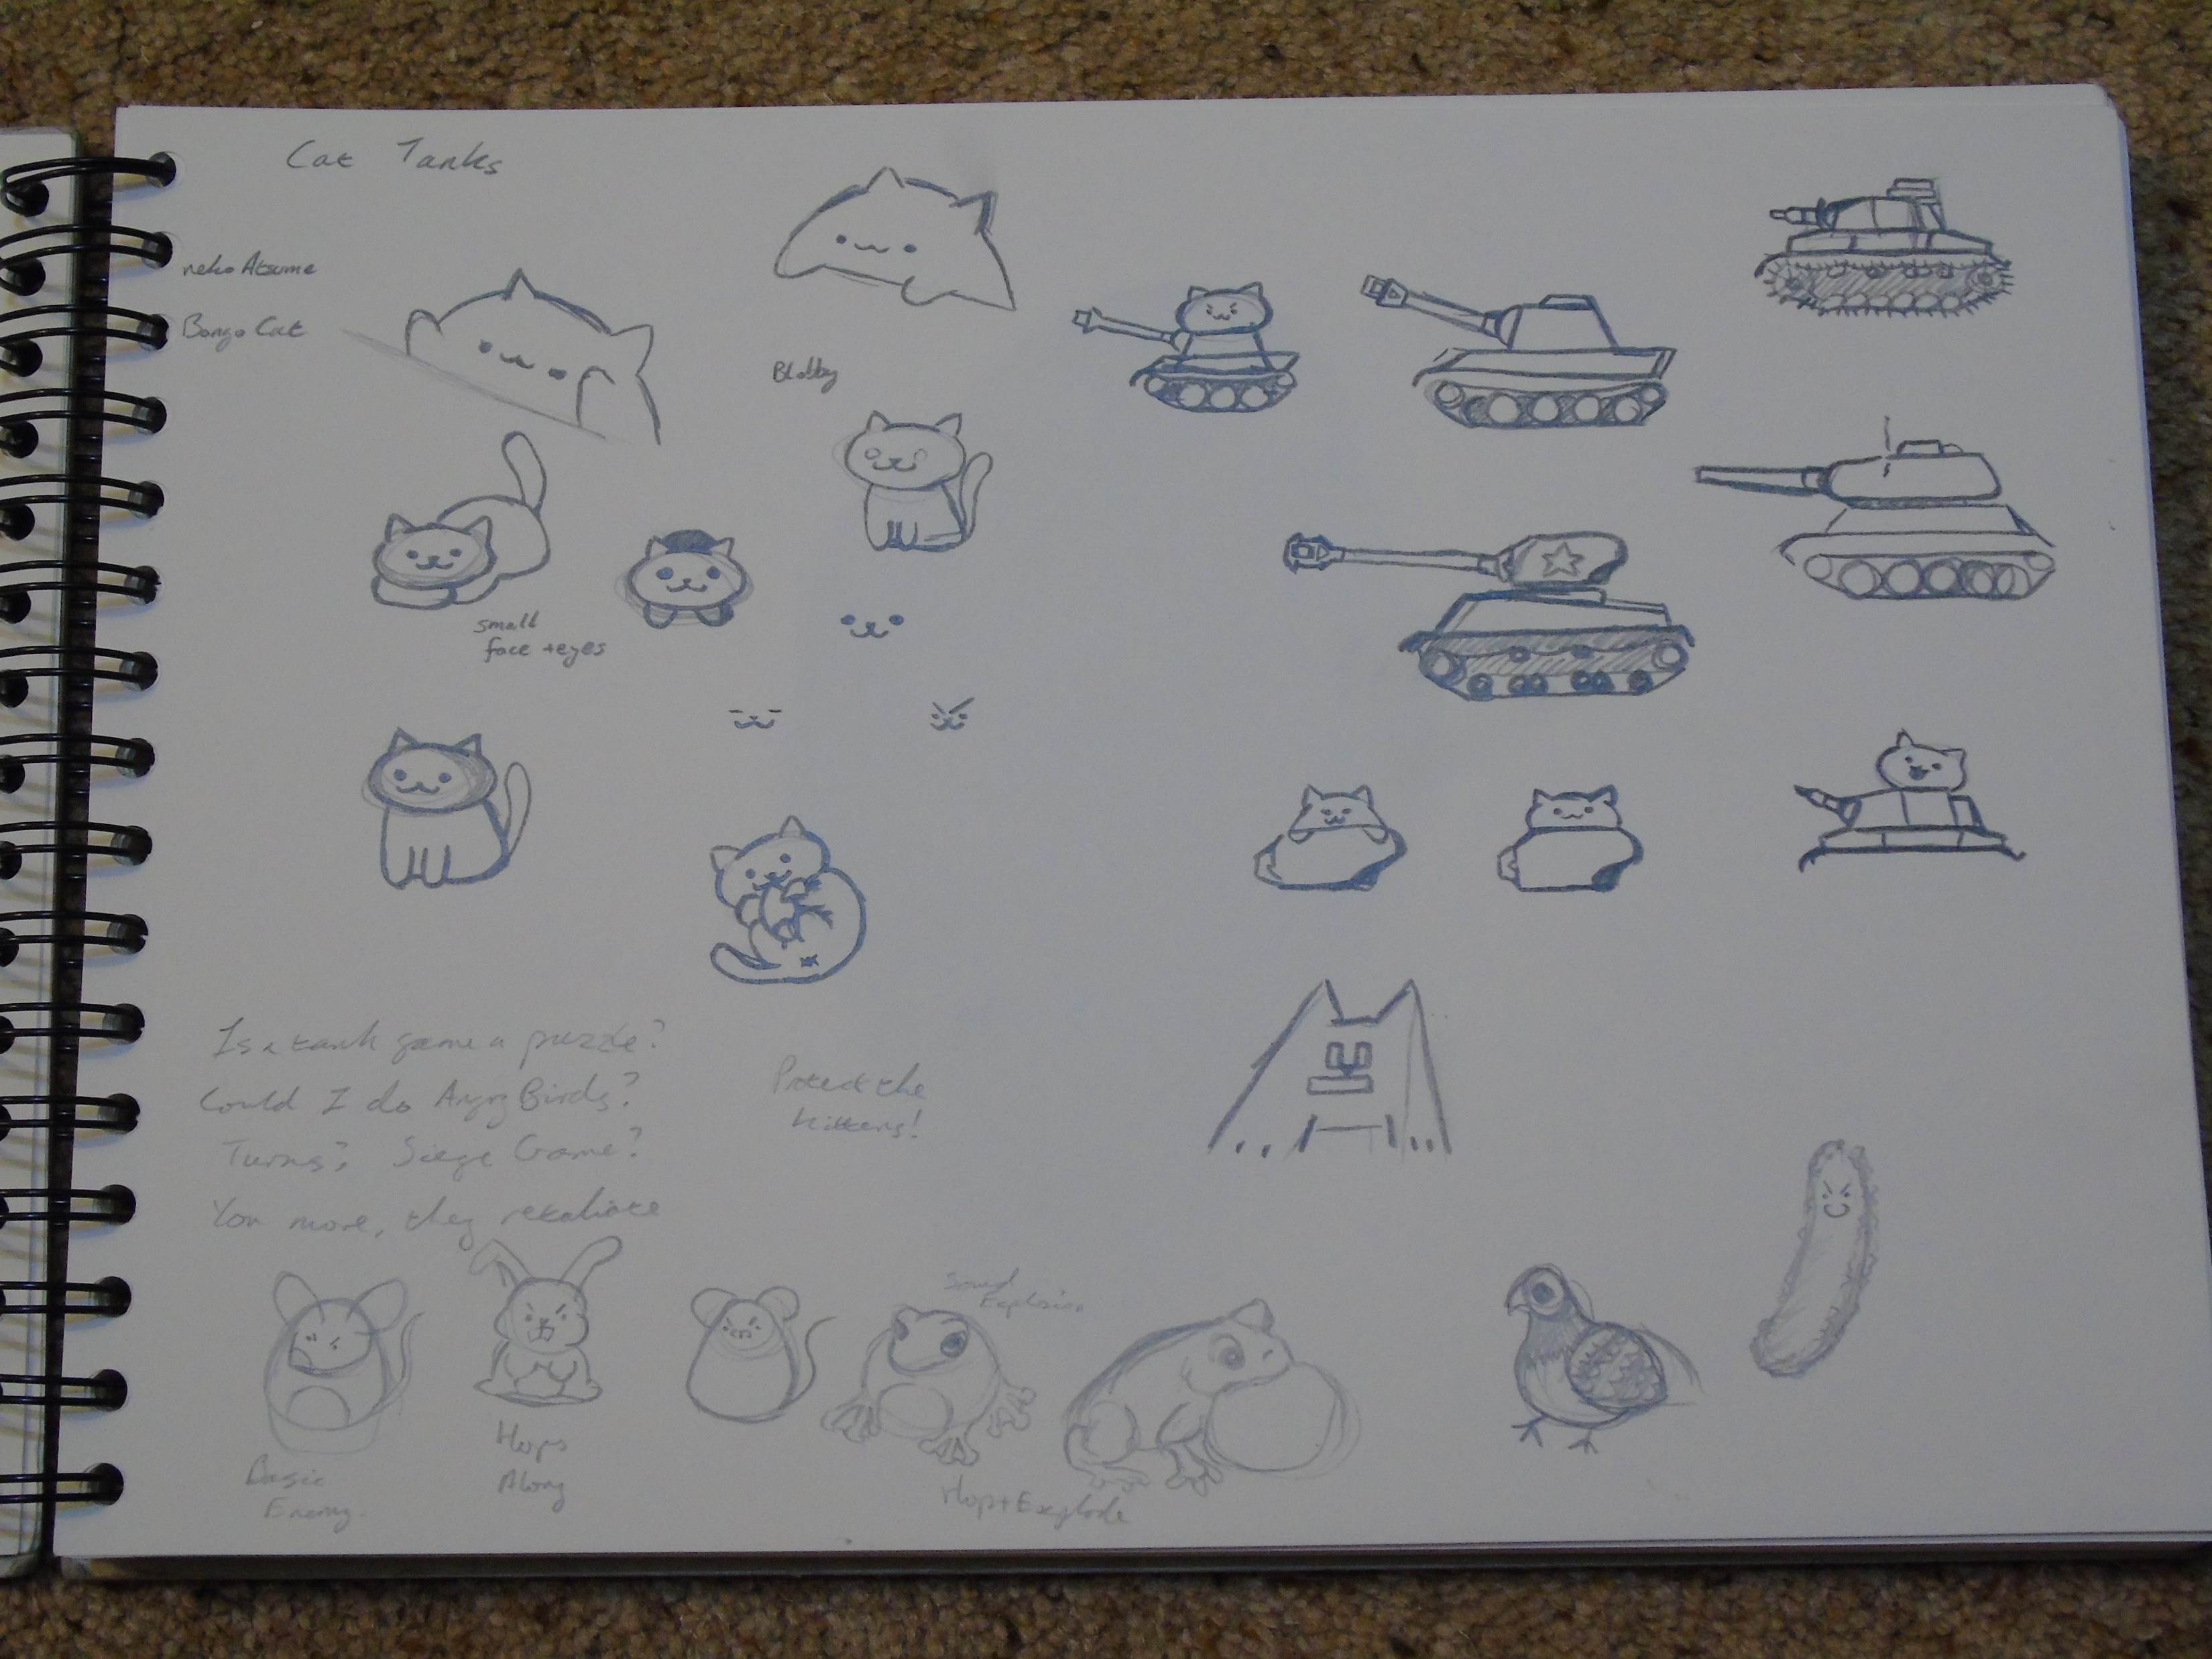 Cat Tanks
neko Atsume
Bongo Cat
Blobby
small
face + eyes
Is a tank game a puzzle?
Could I do Angry Birds?
Turns? Siege Game?
You move, they retaliate
Protect the
kittens!
Basic
Enemy
Hops
Along
Explosion
Hop + Explode